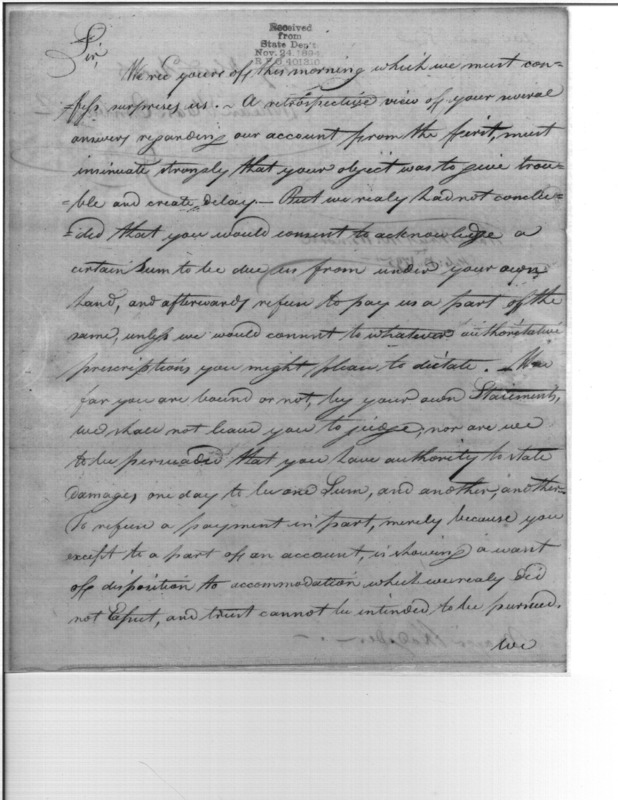 Received
from
State Dep't
Nov. 24, 1894.
Sir,
We rec yours of this morning which we must con-
-fess surprises us. ~ A retrospective view of your several
answers regarding our account from the first, must
insinuate strongly that your object was to give trou-
-ble and create delay — But we realy had not conclu-
-ded that you would consent to acknowledge a
certain Sum to be due us from under your own
hand, and afterwards refuse to pay us a part of the
same, unless we would consent to whatever authoritative
prescriptions you might please to dictate. — How
far you are bound or not, by your own Statements,
we shall not leave you to judge, nor are we
to be persuaded that you have authority to state
Damages one day to be one Sum, and another, another —
To refuse a payment in part, merely because you
except to a part of an account, is showing a want
of disposition to accommodation which we realy did
not Expect, and trust cannot be intended to be pursued.
we